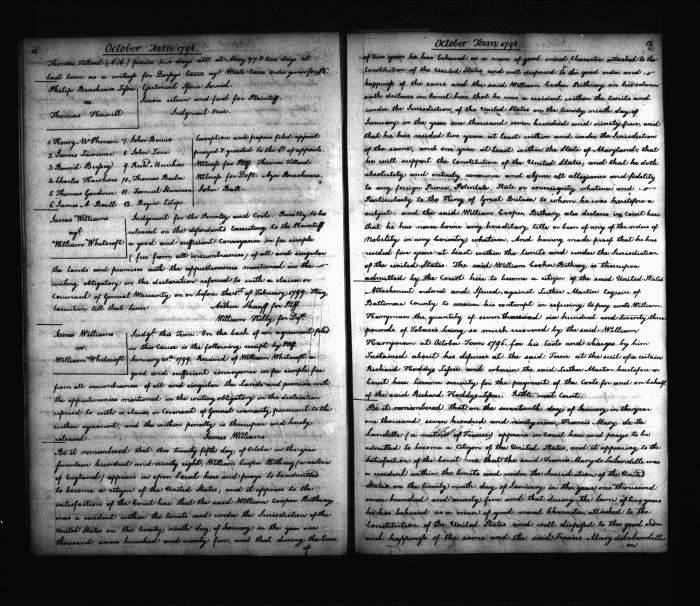 October Term 1798.
Thomas Tillard
last term as a witness for
Philip Brashears Lessee Ejectment Issue Joined.
vs
Jurors return and find for Plaintiff
Thomas Hewitt Judgment Nisi.
1 Henry McPherson 7 John Bowie Exception and papers filed appeal
2 James Lawrence 8 John Love prayed & granted to the Ct of appeals.
3 Bennit Witness for Plff. Thomas Tillard
4 Charles Hawkins 10 Thomas Beale Witness for Deft.
5 Thomas Gardner 11 Samuel John Ball
6 James A. Beall 12
James Williams Judgment for the Penalty and Costs. Penalty to be
agt released on the defendants Executing to the Plaintiff
William Whetcroft a good and sufficient Conveyance in fee simple
(free from all incumbrances) of all and singular
the lands and premises with the appurtenances mentioned in the
writing obligatory in the declaration referred to with a clause or
Covenant of General Warranty, on or before the 1st of February 1799. Stay
execution till that time. Arthur Shaaff for Plff
William Kilty for Deft
James Williams Judgt this Term. On the back of an agreement filed
vs. in this cause is the following receipt by Plff.
William Whetcroft January 20th 1799. Received of William Whetcroft a
good and sufficient conveyance in fee simple free
from all incumbrances of all and singular the Lands and premises with
the appurtenances mentioned in the writing obligatory in the declaration
referred to with a clause or Covenant of General warranty pursuant to the
within agreement, and the within penalty is thereupon and hereby
released. James Williams
Be it remembered that this twenty fifth day of October in the year
seventeen hundred and ninety eight, William Cooper Bethany (a native
of England) appears in open Court here and prays to be admitted
to become a citizen of the United States, and it appears to the
satisfaction of the Court here that the said William Cooper Bethany
was a resident within the limits and under the Jurisdiction of the
United States on the twenty ninth day of January in the year one
thousand seven hundred and ninety five, and that during the term
of
October Term 1798
of two years he has behaved as a man of good moral Character attached to the
Constitution of the United States and well disposed to the good order and
happiness of the same and the said William Cooper Bethany
declares in Court here that he was a resident within the limits and
under the Jurisdiction of the United States on the twenty ninth day of
January in the year one thousand seven hundred and ninety five, and
that he has resided two years at least within and under the Jurisdiction
of the same, and one year at least within the State of Maryland, that
he will support the Constitution of the United States, and that he doth
absolutely and entirely renounce and abjure all allegiance and fidelity
to any foreign Prince, Potentate, State or sovereignty whatever and
Particularly to the King of Great Britain to whom he was heretofore a
subject. and the said William Cooper Bethany also declares in Court here
that he has never borne any hereditary title or been of any of the orders of
Nobility in any country whatever. And having made proof that he has
resided five years at least within the limits and under the Jurisdiction
of the United States. The said William Cooper Bethany is thereupon
admitted by the Court here to become a citizen of the said United States
Attachment ordered and Issued against Luther Martin Esquire of
Baltimore County to answer his contempt in refusing to pay unto William
Harryman the quantity of seven thousand six hundred and twenty three
pounds of Tobacco being so much recovered by the said William
Harryman at October Term 1796 for his costs and charges by him
Sustained about his defence at the said Term at the suit of a certain
Richard Lessee and wherein the said Luther Martin heretofore in
Court here became security for the payment of the Costs for and on behalf
of the said Richard Lessee. Retble next Court.
Be it remembered. That on the seventeenth day of January in the year
one thousand seven hundred and ninety nine, Francis Mary de la
Landelle (a native of France) appears in Court here and prays to be
admitted to become a citizen of the United States, and it appearing to the
satisfaction of the Court here that the said Francis Mary de la Landelle was
a resident within the limits and under the Jurisdiction of the United
States on the twenty ninth day of January in the year one thousand
seven hundred and ninety five and that during the term of two years
he has behaved as a man of good moral Character attached to the
Constitution of the United States and well disposed to the good order
and happiness of the same and the said Francis Mary de la Landelle